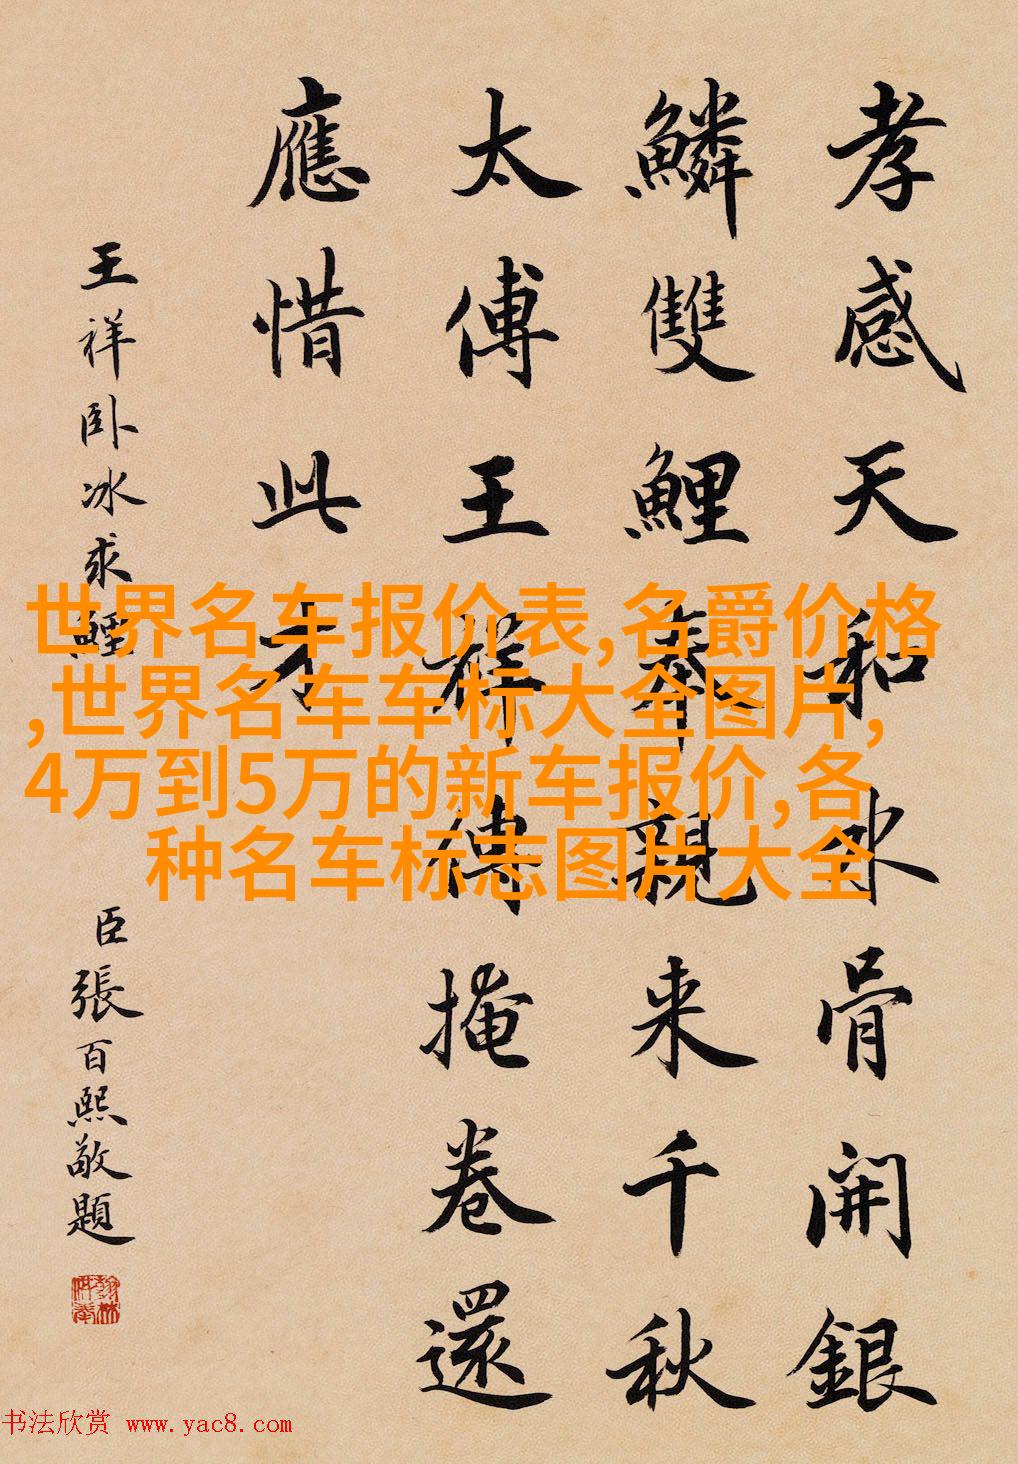 孝感天和冰骨開銀
鱗雙鯉奉親来千秋
太傅王祥傳掩卷還
應惜此才
王祥卧冰求鯉
臣張百熙敬題
世界名车报价表,名爵价格
,世界名车车标大全图片,
4万到5万的新车报价,各
种名车标志图片大全
书法欣赏 www.yac8.com